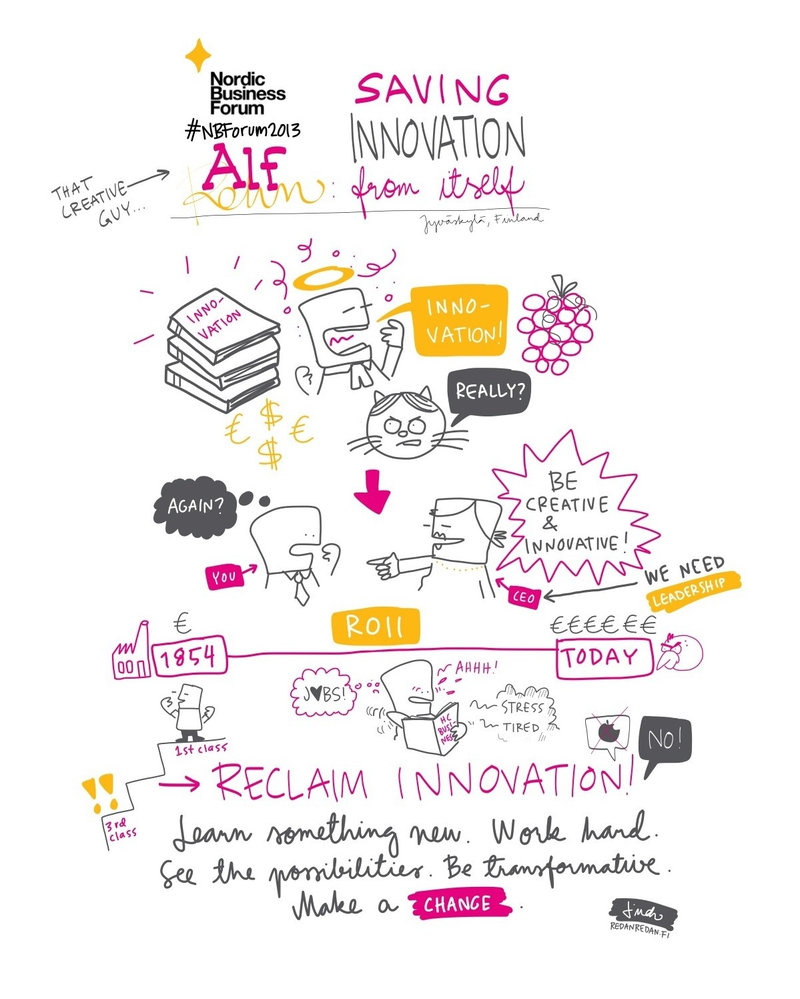 Nordic
Business
Forum
#NBForum2013
SAVING
INNOVATION
from itself
Alf
Rehn:
THAT
CREATIVE
GUY...
Jyväskylä, Finland
INNO-
VATION
INNO-
VATION!
REALLY?
AGAIN?
YOU
BE
CREATIVE
&
INNOVATIVE!
CEO
WE NEED
LEADERSHIP
€ $ € $
€
ROII
€€€€€€
1854
TODAY
J♥BS!
AHHH!
HC
BUSI-
NESS
STRESS
TIRED
NO!
1st class
!!
3rd
class
→ RECLAIM INNOVATION!
Learn something new. Work hard.
See the possibilities. Be transformative.
Make a CHANGE.
REDANREDAN.FI